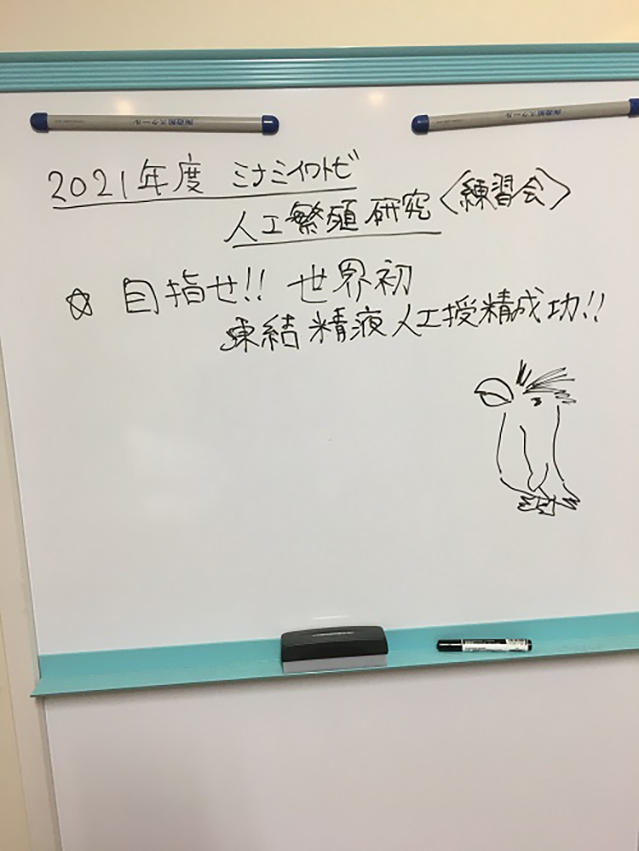 2021年度 ミナミイワトビ
人工繁殖研究〈練習会〉
☆ 目指せ!! 世界初
凍結精液人工授精成功!!